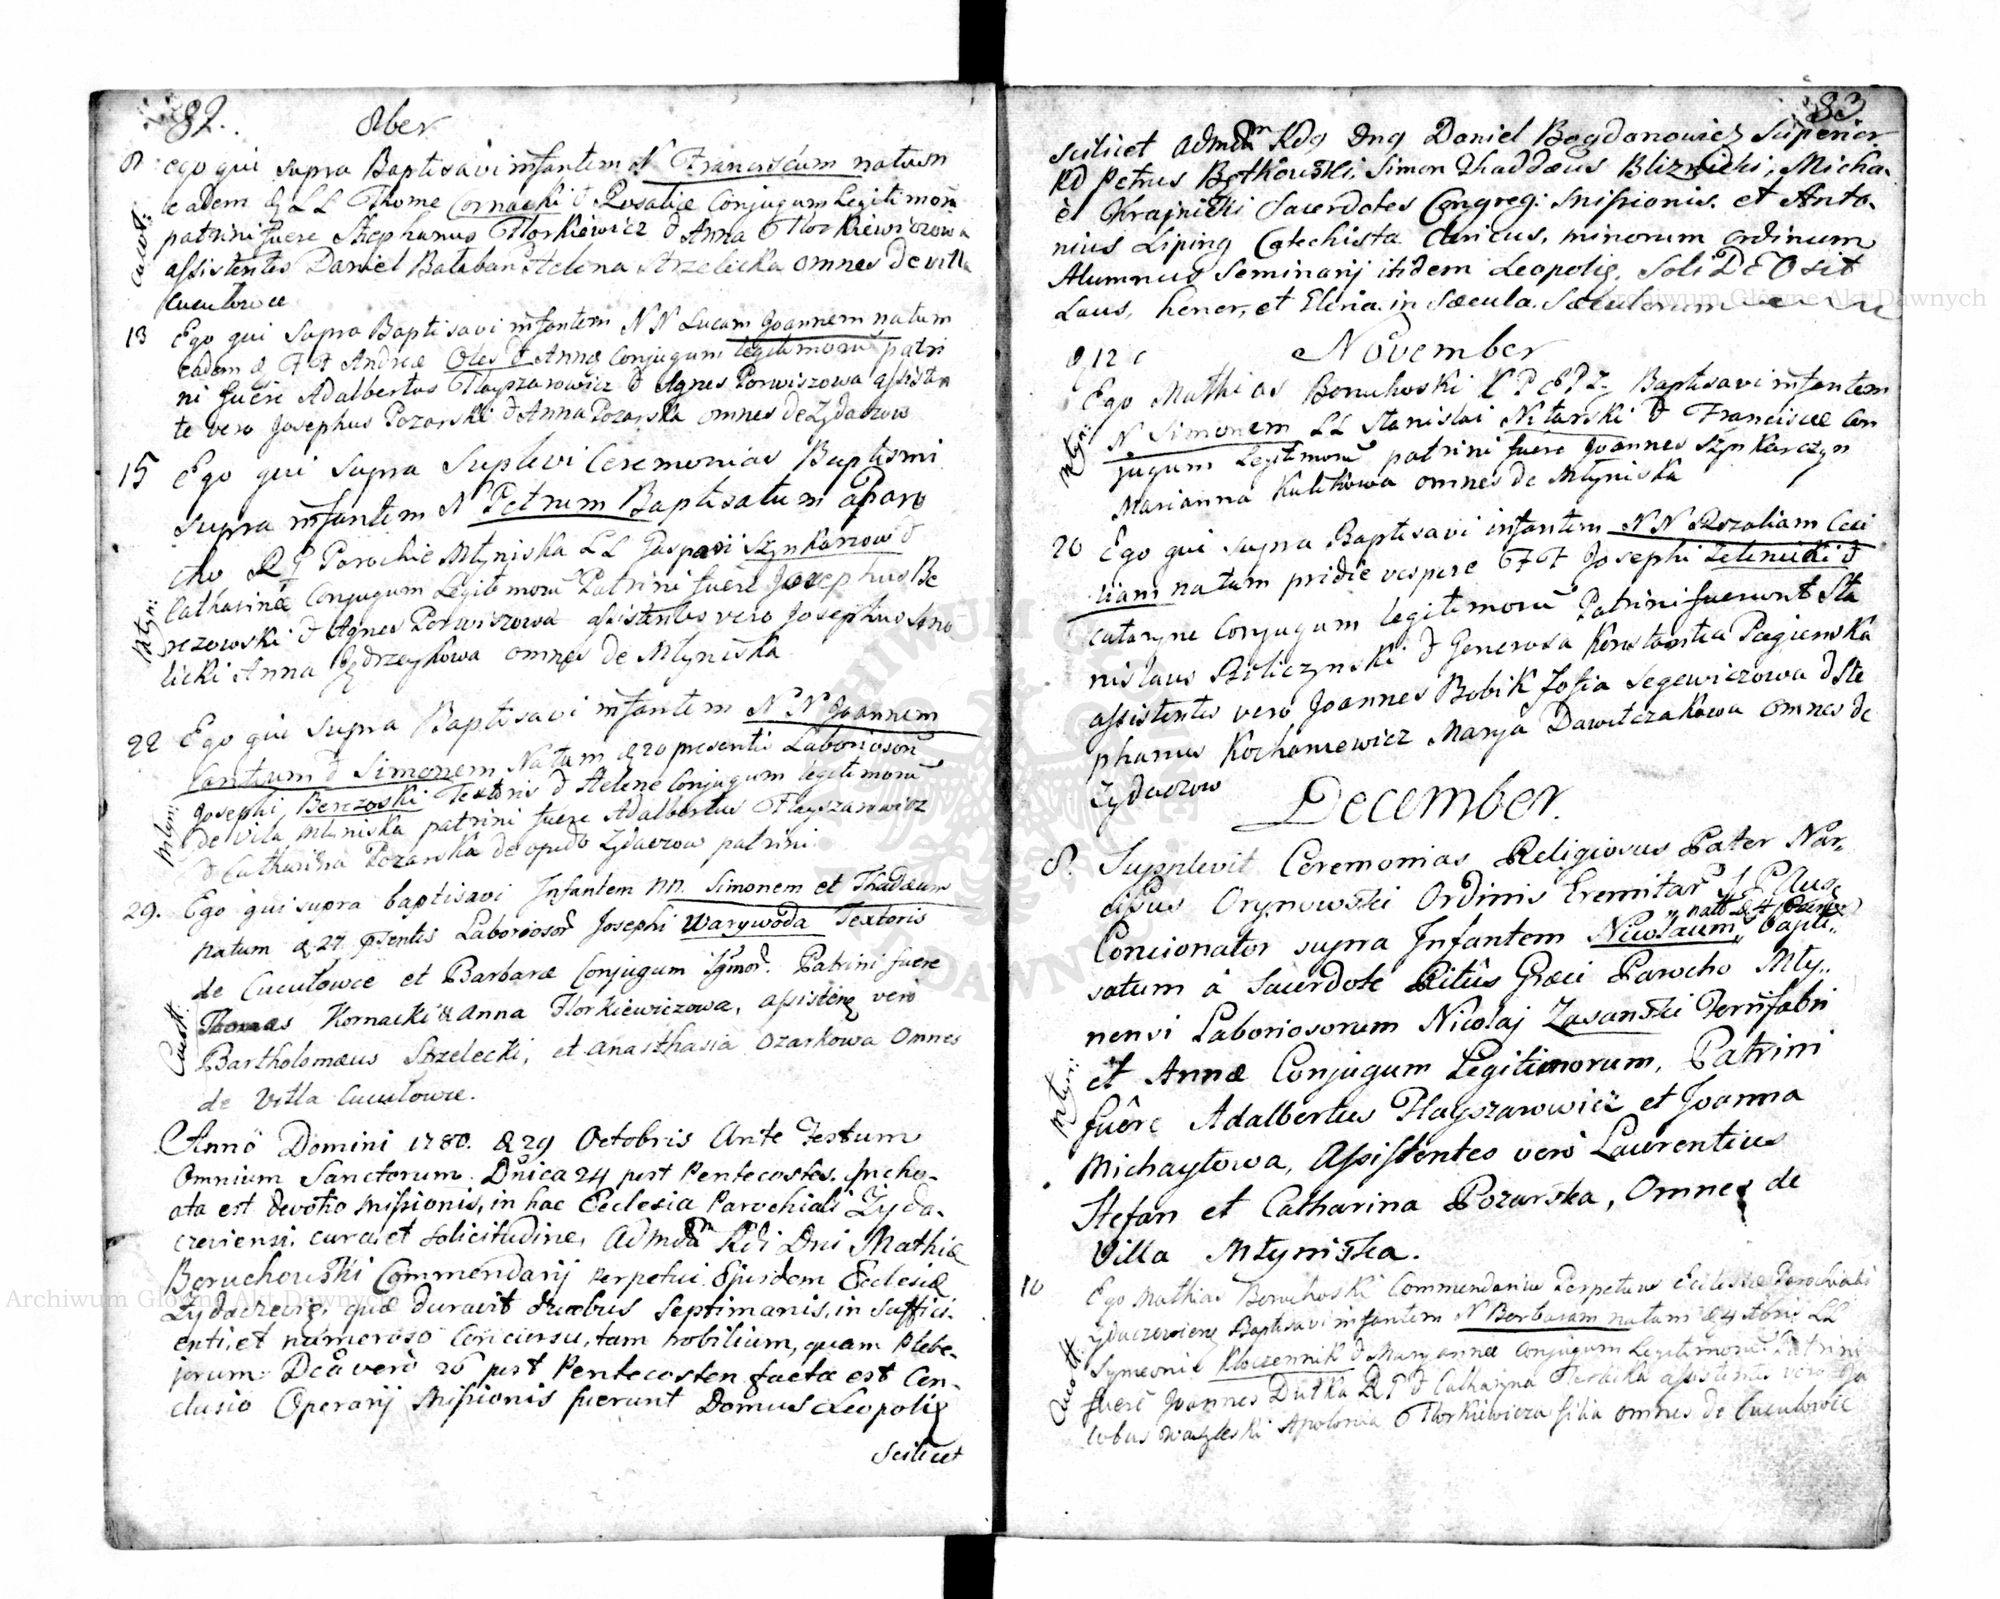 82.
8ber
8 ego qui supra Baptisavi infantem N Franciscum natum
eadem d LL Thome Cornacki & Rosaliæ Conjugum Legitimoru
patrini fuere Stephanus Florkiewicz & Anna Florkiewiczowa
assistentes Daniel Bałaban Helena Strzelicka omnes de villa
Cucułowce
13 Ego qui supra Baptisavi infantem NN Lucam Joannem natum
eadem d FF Andreæ Oles & Annæ Conjugum legitimoru patri
ni fuere Adalbertus Flayszarowicz & Agnes Porwiszowa assisten
te vero Josephus Pozarski & Anna Pozarska omnes de Zydaczow
15 Ego qui supra Suplevi Ceremonias Baptismi
supra infantem N Petrum Baptisatum a Paro
cho R G Parochie Młyniska LL Gaspari Szynkarzow &
Catharinæ Conjugum Legitimoru Patrini fuere Josephus Be
rezowski & Agnes Porwiszowa assistentes vero Josephus
licki Anna omnes de Młyniska
22 Ego qui supra Baptisavi infantem NN Joannem
Cantium & Simonem Natum d 20 presentis Laboriosoru
Josephi Berezoski Textoris & Helene Conjugum legitimoru
de Villa Młyniska patrini fuere Adalbertus Flayszarowicz
& Catharina Pozarska de opido Zydaczow patrini
29. Ego qui supra baptisavi Infantem NN. Simonem et Thadæum
natum d 27 pſentis Laboriosor Josephi Warywoda Textoris
de Cucułowce et Barbaræ Conjugum lgmor. Patrini fuere
Thomas Kornacki & Anna Florkiewiczowa, assistene vero
Bartholomæus Strzelecki, et Anasthasia Ozarkowa Omnes
de Villa Cucułowce.
Anno Domini 1780. d 29 Octobris Ante Festum
Omnium Sanctorum. Dnica 24 post Pentecostes. Incho-
ata est devotio Missionis, in hac Ecclesia Parochiali Zyda-
czeviensi. cura, et solicitudine, Admdm Rdi Dni Mathiæ
Boruchowski Commendarij perpetui Ejusdem Ecclesiæ
Zydaczevie, quæ duravit duabus septimanis, in suffici-
enti, et numeroso Concursu, tam nobilium, quam Plebe-
jorum: Dca vero 26 post Pentecosten facta est Con-
clusio Operarij Missionis fuerunt Domus Leopolie
Scilicet
83
scilicet Admdm Rdg Dng Daniel Bogdanowicz Superior
Rd Petrus Bętkowski, Simon Thaddæus Bliznicki, Micha-
el Krajnicki Sacerdotes Congreg: Missionis. et Anto-
nius Liping Catechista Clericus, minorum Ordinum
Alumnus Seminarij itidem Leopolie. Soli DEO sit
Laus, honor, et Gloria. in Sæcula. Sæculorum
November
d 12
Ego Mathias Boruchoski C P E P Z Baptisavi infantem
N Simonem LL Stanislai Nitarski & Francisce Con
jugum Legitimoru patrini fuere Joannes Szynkarczyn
Marianna Kulikowa omnes de Młyniska
20 Ego qui supra Baptisavi infantem NN Rozaliam Ceci
liam natam pridie vespere FF Josephi Zelenicki &
Cataryne Conjugum legitimoru Patrini fuerunt Sta
nislaus & Generosa Konstantia Pagienska
assistentes vero Joannes Bobik Zofia Segewiczowa & Ste
phanus Kochaniewicz Marya Dawitczakowa omnes de
Zydaczow
December.
8. Supplevit Ceremonias Religiosus Pater Nar-
cissus Orynowski Ordinis Eremitar S P Aug
Concionator supra Infantem Nicolaum, natu d 4 bapti-
satum a Sacerdote Ritûs Græci Parocho Mły-
nensi Laboriosorum Nicolaj Zasanski Ferrifabri
et Annæ Conjugum Legitimorum, Patrini
fuêre Adalbertus Flayszarowicz et Joanna
Michayłowa, Assistentes vero Laurentius
Stefan et Catharina Pozarska, Omnes de
Villa Młyniska.
10 Ego Mathias Boruchoski Commendarius Perpetuus Ecclesiæ Parochialis
Zydaczoviens Baptisavi infantem N Barbaram natam d 4 Xbris LL
Symeonis Kloczennik & Maryannæ Conjugum Legitimoru Patrini
fuere Joannes Dutka R G & Catharyna assistentes vero Ja
cobus Apolonia Florkiewicza filia omnes de Cucułowce
Archiwum Główne Akt Dawnych
Archiwum Główne Akt Dawnych